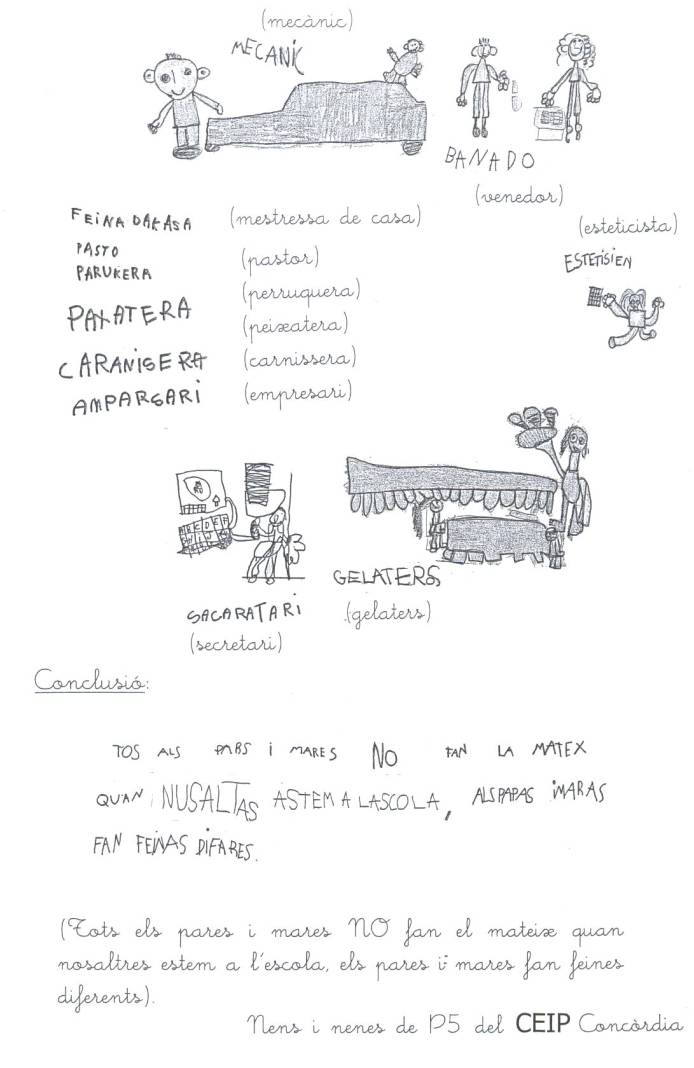 (mecànic)
MECANIC
BANADO
(venedor)
FEINA DAKASA (mestressa de casa)
(esteticista)
PASTO (pastor)
ESTETISIEN
PARUKERA (perruquera)
PAXATERA (peixatera)
CARANISERA (carnissera)
AMPARSARI (empresari)
GELATERS
SACARATARI (gelaters)
(secretari)
Conclusió:
TOS ALS PARS i MARES NO FAN LA MATEX
QUAN NUSALTAS ASTEM A LASCOLA, ALS PAPAS i MARAS
FAN FEINAS DIFARES.
(Tots els pares i mares NO fan el mateix quan
nosaltres estem a l'escola, els pares i mares fan feines
diferents).
Nens i nenes de P5 del CEIP Concòrdia